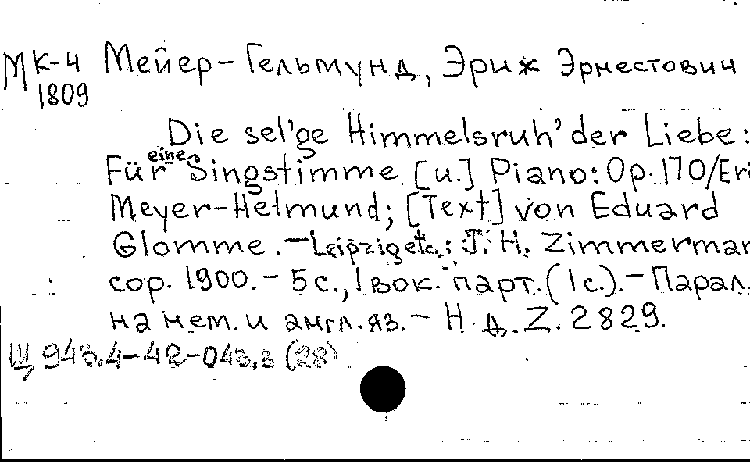 МК-4 Мейер-Гельмунд, Эрих Эрнестович
1809
Die sel'ge Himmelsruh' der Liebe:
Für eine Singstimme [u.] Piano: Op. 170/Eri
Meyer-Helmund; [Text] von Eduard
Glomme. - Leipzig etc.: J. H. Zimmerman
cop. 1900. - 5 с., 1 вок. парт. (1 с.). - Парал.
на нем. и англ. яз. - Н. д. Z. 2829.
Щ 943.4-42-043,3 (28)